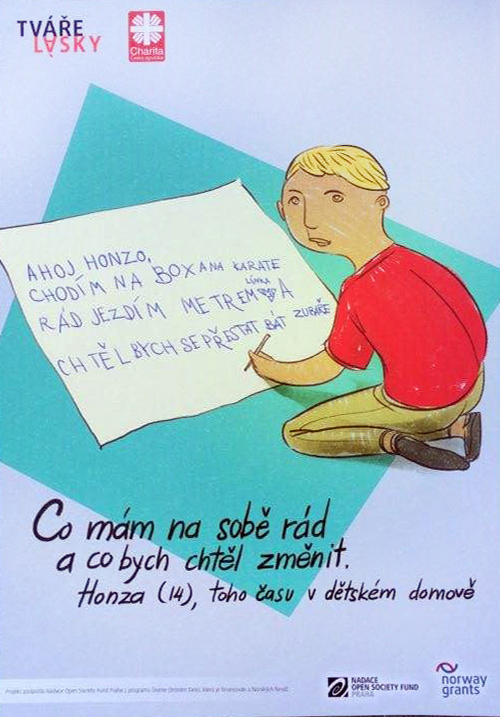 TVÁŘE
LÁSKY
Charita
Česká republika
AHOJ HONZO,
CHODÍM NA BOX A NA KARATE
RÁD JEZDÍM METREM LINKA A
CHTĚL BYCH SE PŘESTAT BÁT ZUBAŘE
Co mám na sobě rád
a co bych chtěl změnit.
Honza (14), toho času v dětském domově
Projekt podpořila Nadace Open Society Fund Praha z programu Dejme (že)nám šanci, který je financován z Norských fondů.
NADACE
OPEN SOCIETY FUND
PRAHA
norway
grants